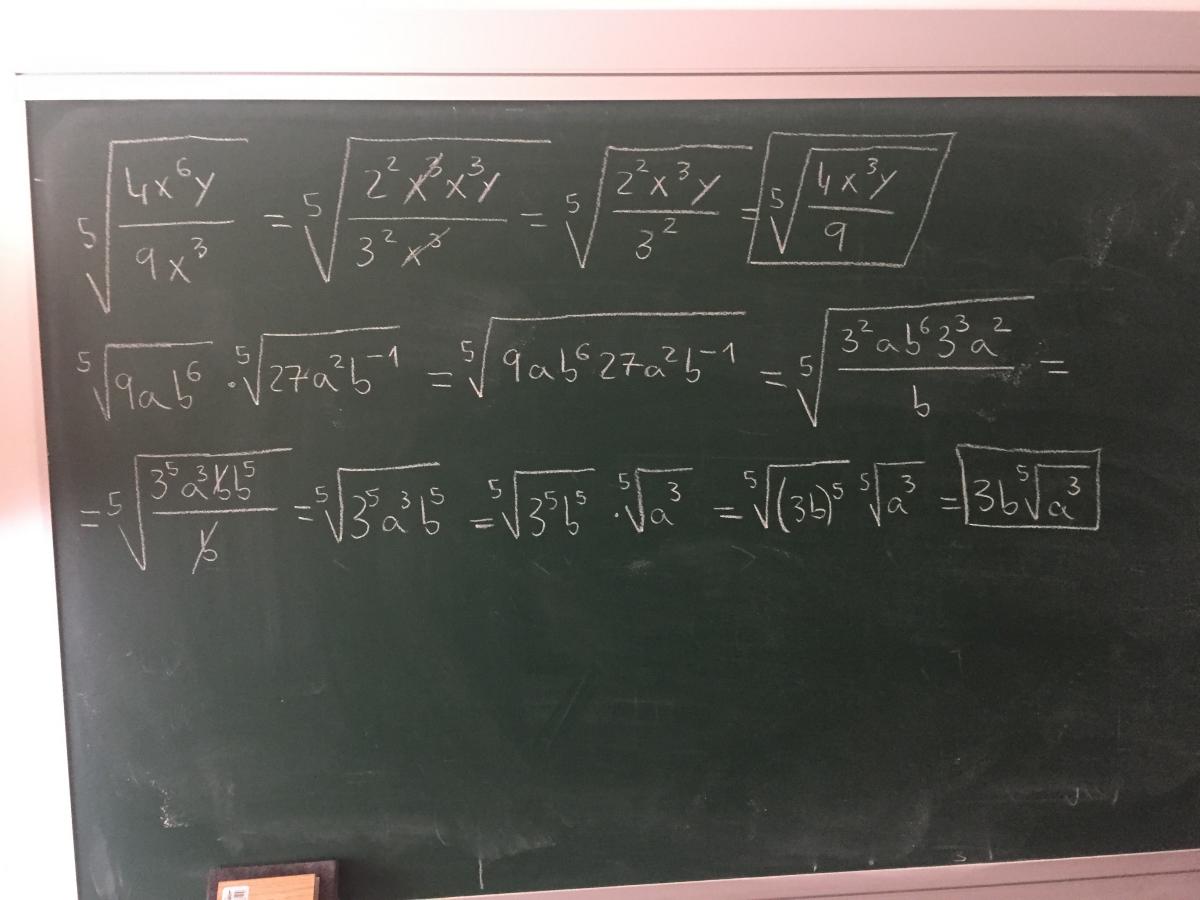 ⁵√(4x⁶y / 9x³) = ⁵√(2²x³x³y / 3²x³) = ⁵√(2²x³y / 3²) = ⁵√(4x³y / 9)
⁵√(9ab⁶) · ⁵√(27a²b⁻¹) = ⁵√(9ab⁶27a²b⁻¹) = ⁵√(3²ab⁶3³a² / b) =
= ⁵√(3⁵a³bb⁵ / b) = ⁵√(3⁵a³b⁵) = ⁵√(3⁵b⁵) · ⁵√(a³) = ⁵√((3b)⁵) ⁵√(a³) = 3b ⁵√(a³)